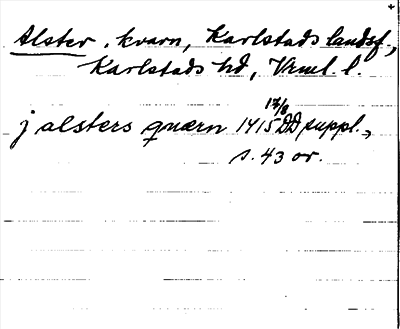 Alster, kvarn, Karlstads landsf.,
Karlstads hd, Vrml. l.
17/8
j alsters quærn 1415 DD suppl.,
s. 43 or.